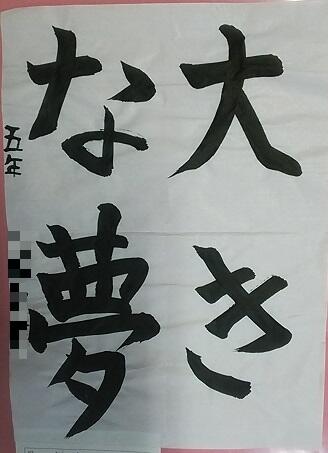 大き
な夢
五年